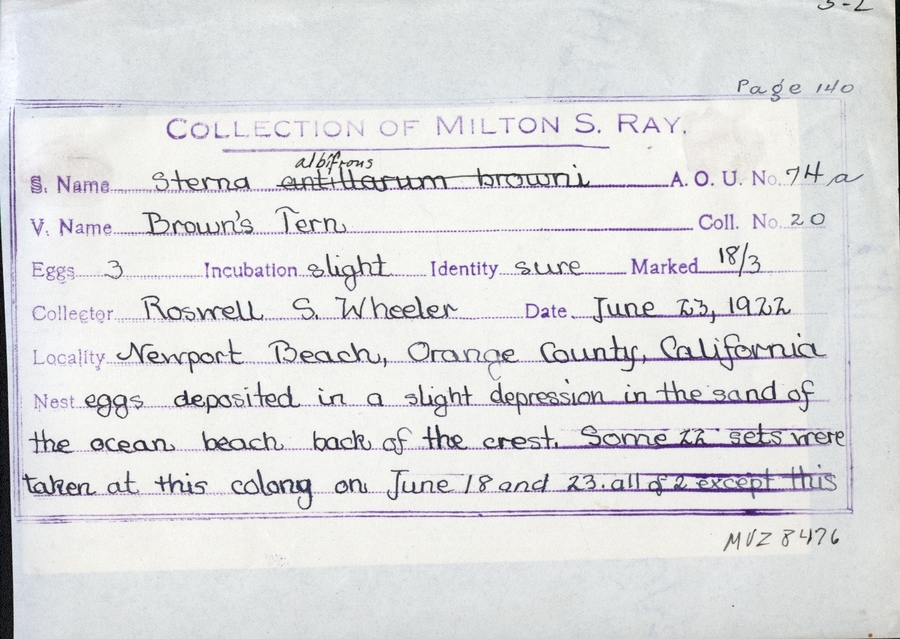 3-2
Page 140
COLLECTION OF MILTON S. RAY.
albifrons
S. Name Sterna antillarum browni A. O. U. No. 74 a
V. Name Brown's Tern Coll. No. 20
Eggs 3 Incubation slight Identity sure Marked 18/3
Collector Roswell S. Wheeler Date June 23, 1922
Locality Newport Beach, Orange County, California
Nest eggs deposited in a slight depression in the sand of
the ocean beach back of the crest. Some 22 sets were
taken at this colony on June 18 and 23. all of 2 except this
MVZ 8476